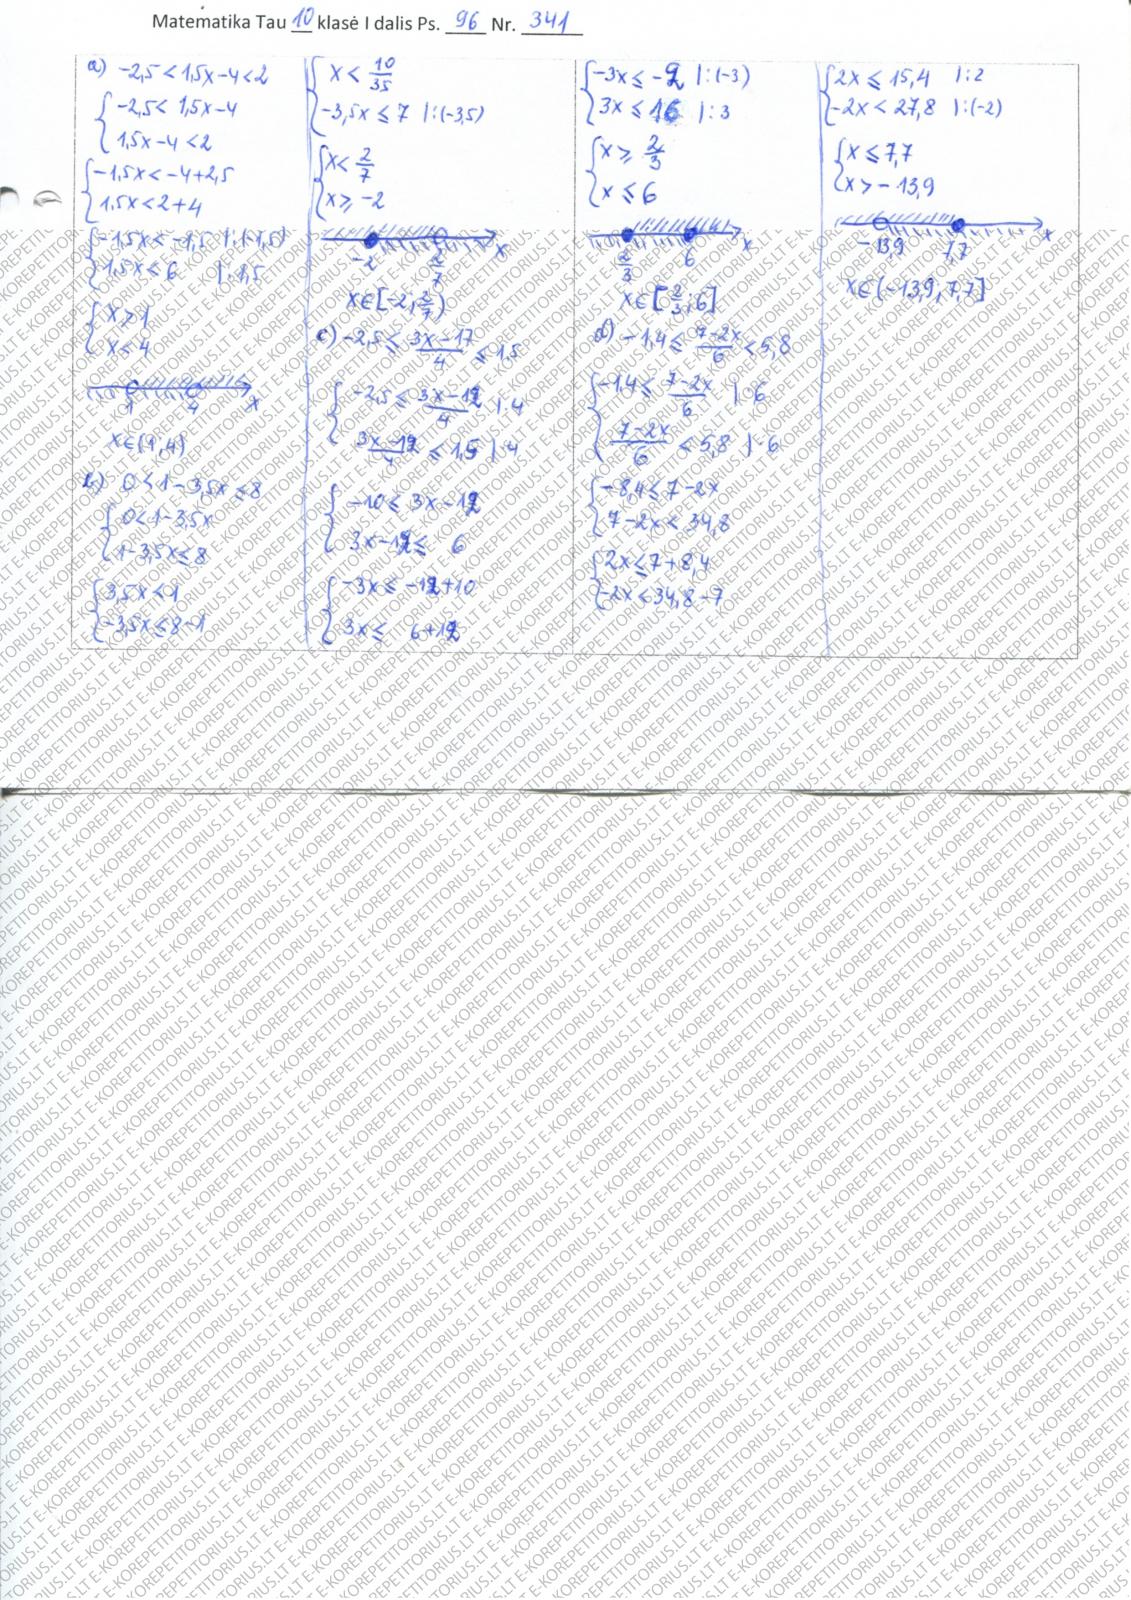 Matematika Tau 10 klasė I dalis Ps. 96 Nr. 341
a) -2,5 < 1,5x-4 < 2
{ -2,5 < 1,5x-4
1,5x-4 < 2
{ -1,5x < -4+2,5
1,5x < 2+4
{ -1,5x < -1,5 |:(-1,5)
1,5x < 6 |:1,5
{ x > 1
x < 4
1 4 x
x∈(1;4)
b) 0 < 1-3,5x ≤ 8
{ 0 < 1-3,5x
1-3,5x ≤ 8
{ 3,5x < 1
-3,5x ≤ 8-1
{ x < 10/35
-3,5x ≤ 7 |:(-3,5)
{ x < 2/7
x ≥ -2
-2 2/7 x
x∈[-2; 2/7)
c) -2,5 ≤ (3x-17)/4 ≤ 1,5
{ -2,5 ≤ (3x-12)/4 |·4
(3x-12)/4 ≤ 1,5 |·4
{ -10 ≤ 3x-12
3x-12 ≤ 6
{ -3x ≤ -12+10
3x ≤ 6+12
{ -3x ≤ -2 |:(-3)
3x ≤ 16 |:3
{ x ≥ 2/3
x ≤ 6
2/3 6 x
x∈[2/3; 6]
d) -1,4 ≤ (7-2x)/6 < 5,8
{ -1,4 ≤ (7-2x)/6 |·6
(7-2x)/6 < 5,8 |·6
{ -8,4 ≤ 7-2x
7-2x < 34,8
{ 2x ≤ 7+8,4
-2x < 34,8-7
{ 2x ≤ 15,4 |:2
-2x < 27,8 |:(-2)
{ x ≤ 7,7
x > -13,9
-13,9 7,7 x
x∈(-13,9; 7,7]
E-KOREPETITORIUS.LT